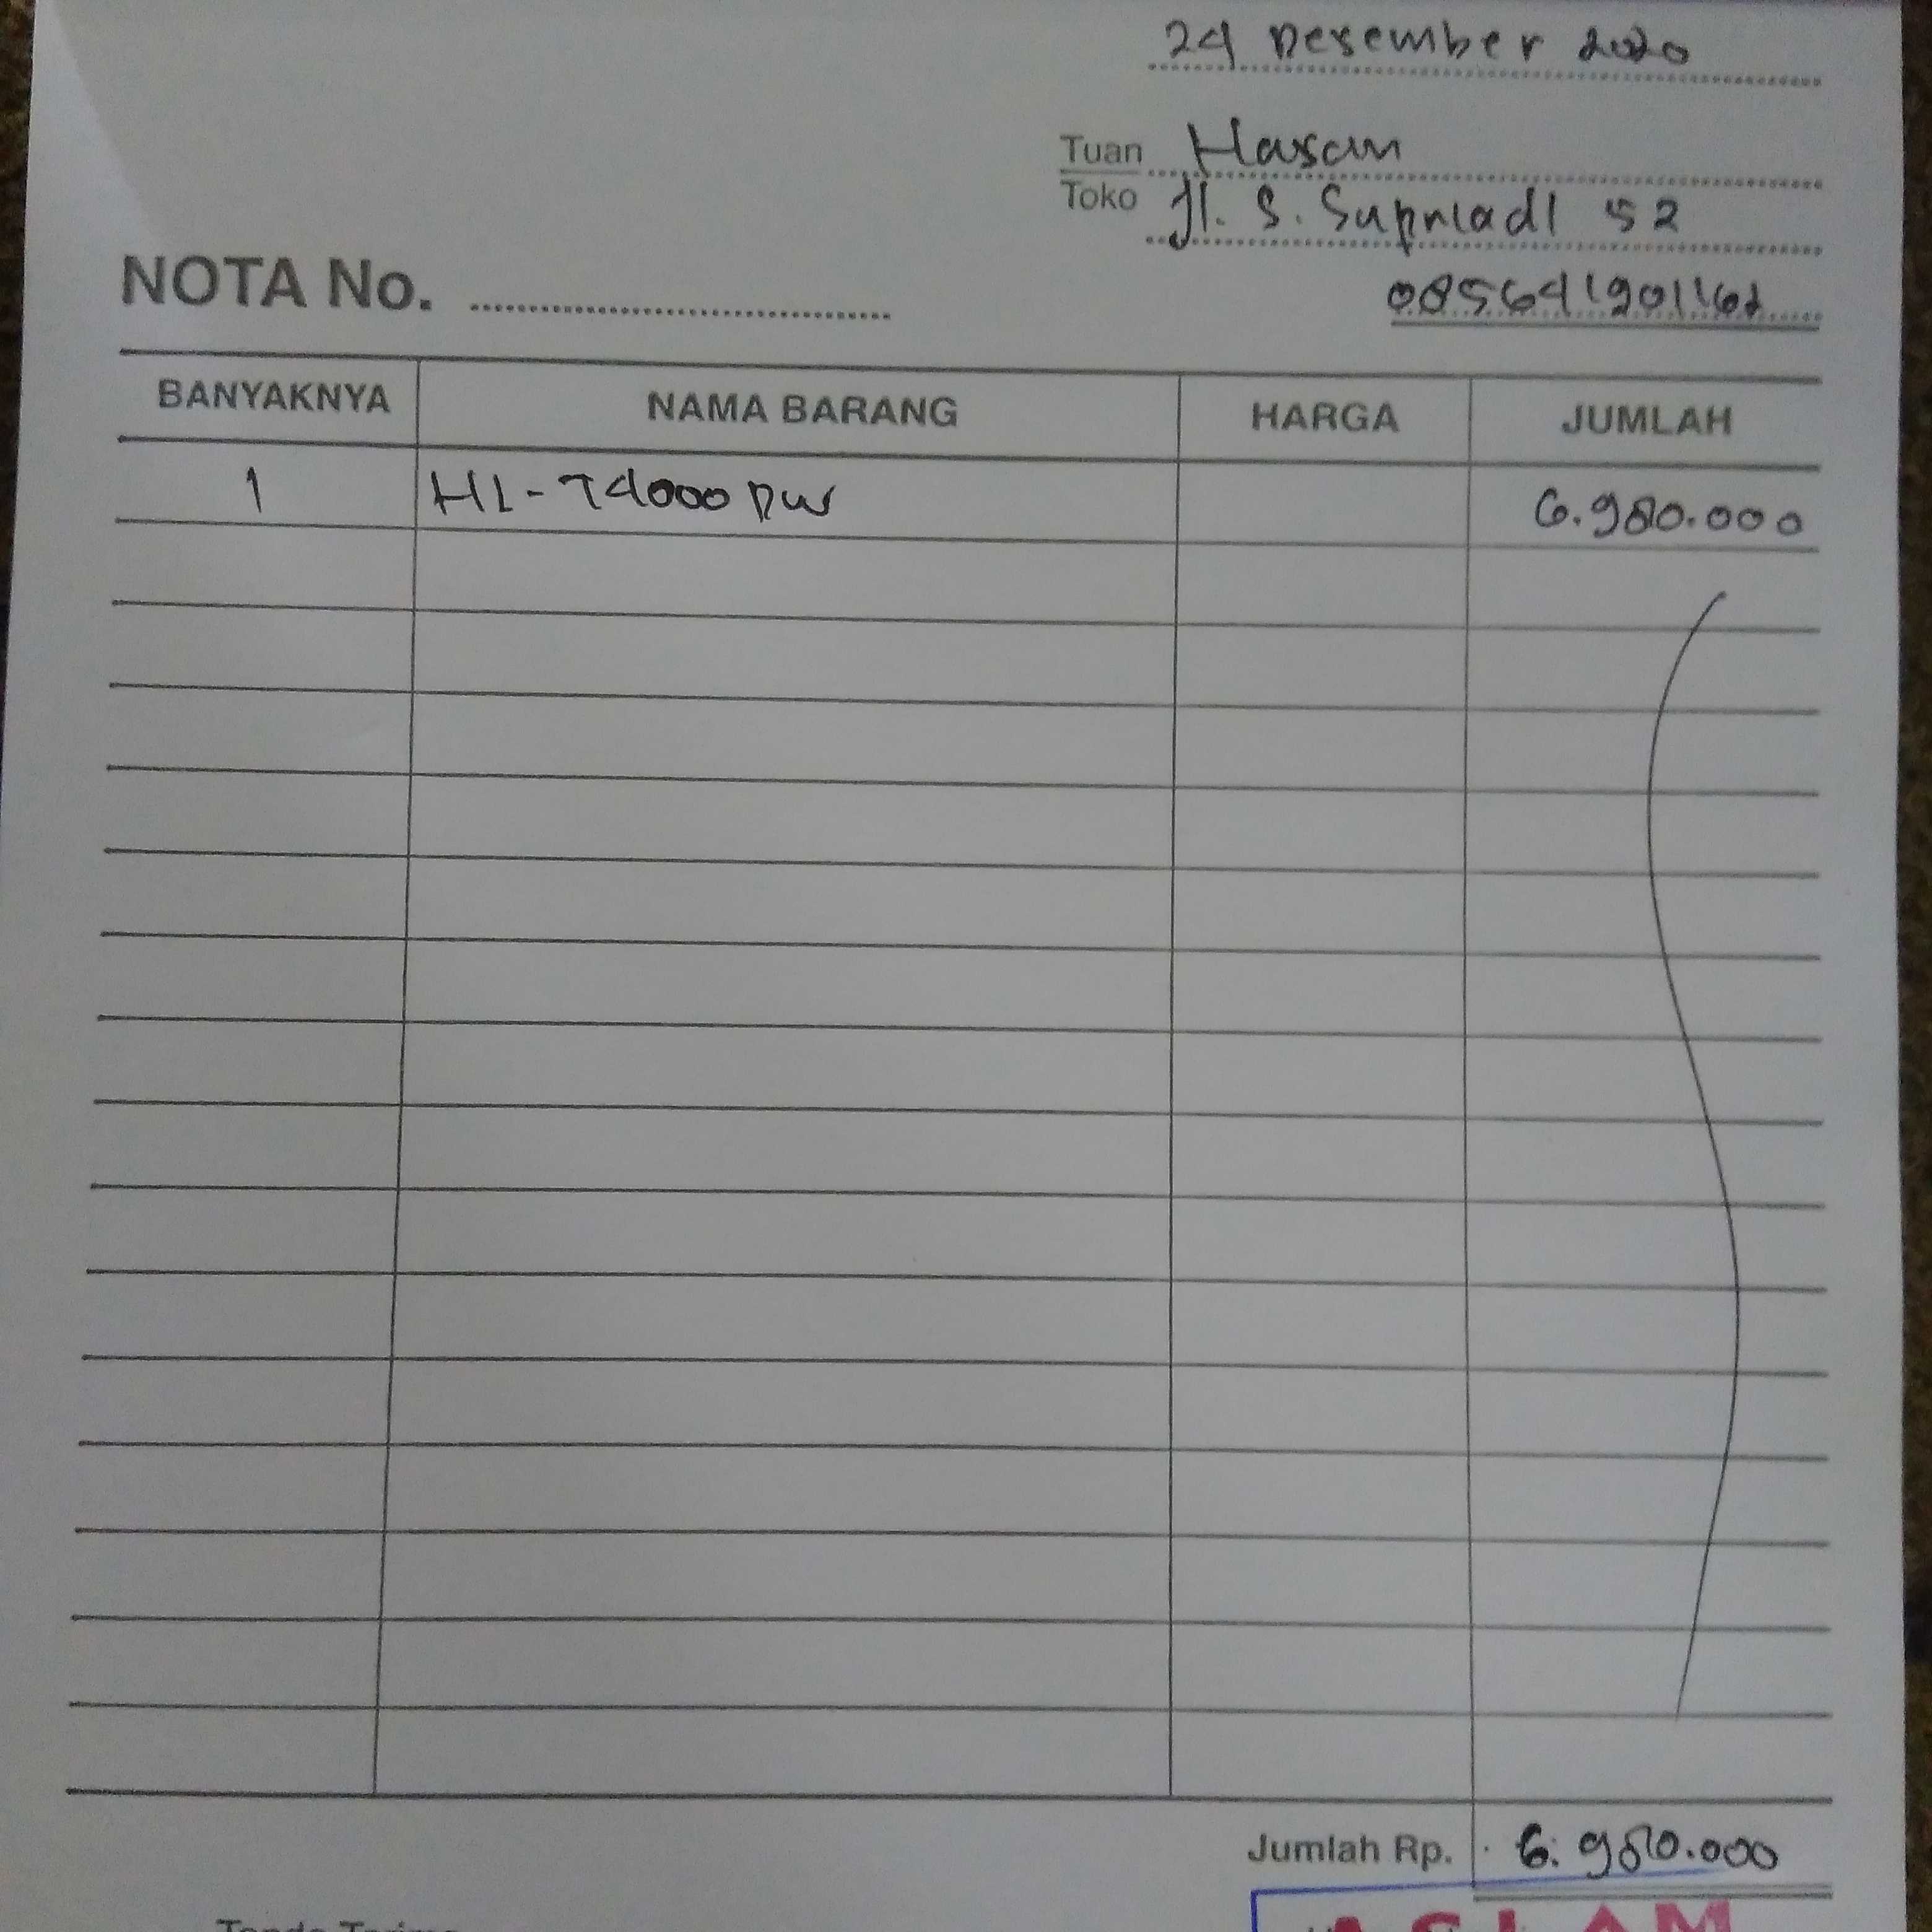 24 Desember 2020
Tuan Hasan
Toko Jl. S. Supriadi 52
NOTA No.
BANYAKNYA NAMA BARANG HARGA JUMLAH
1 HL-T4000 DW 6.980.000
Jumlah Rp. 6.980.000
ASLAM